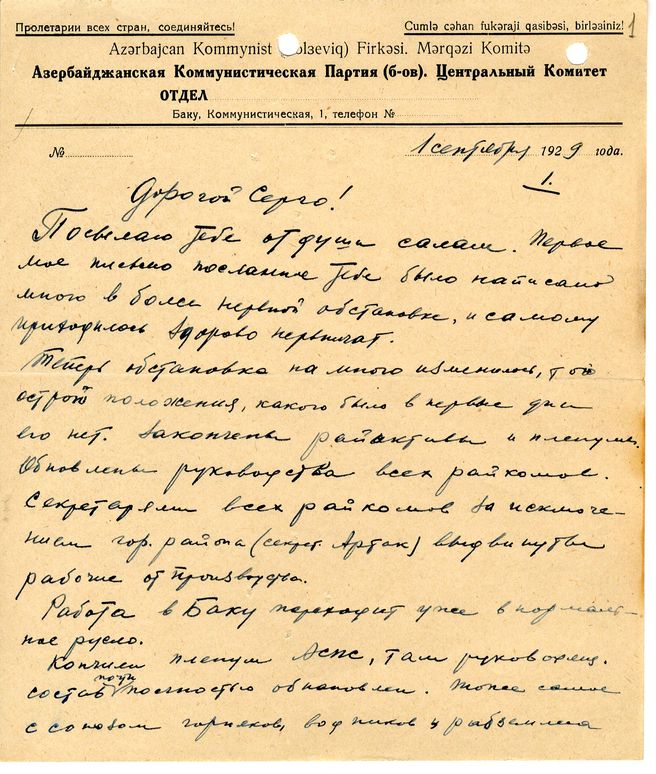 Пролетарии всех стран, соединяйтесь!
Cumlə cəhan fukəraji qasibəsi, birləsiniz!
1
Azərbajcan Kommynist olзeviq) Firkəsi. Mərqəzi Komitə
Азербайджанская Коммунистическая Партия (б-ов). Центральный Комитет
ОТДЕЛ
Баку, Коммунистическая, 1, телефон №
№
1 сентября 1929 года.
1.
Дорогой Серго!
Посылаю тебе от души салам. Первое
мое письмо посланное тебе было написано
много в более нервной обстановке, и самому
приходилось здорово нервничат.
Теперь обстановка на много изменилось, той
острой положения, какого было в первые дни
его нет. Закончены райактивы и пленумы.
Обновлены руководства всех райкомов.
Секретарями всех райкомов за исключе-
нием гор. района (секрет. Артак) выдвинуты
рабочие от производства.
Работа в Баку переходит уже в нормаль-
ное русло.
Кончили пленум АСПС, там руководящ.
состав почти полностью обнановлен. Тоже самое
с союзом горняков, водников и рабземлеса